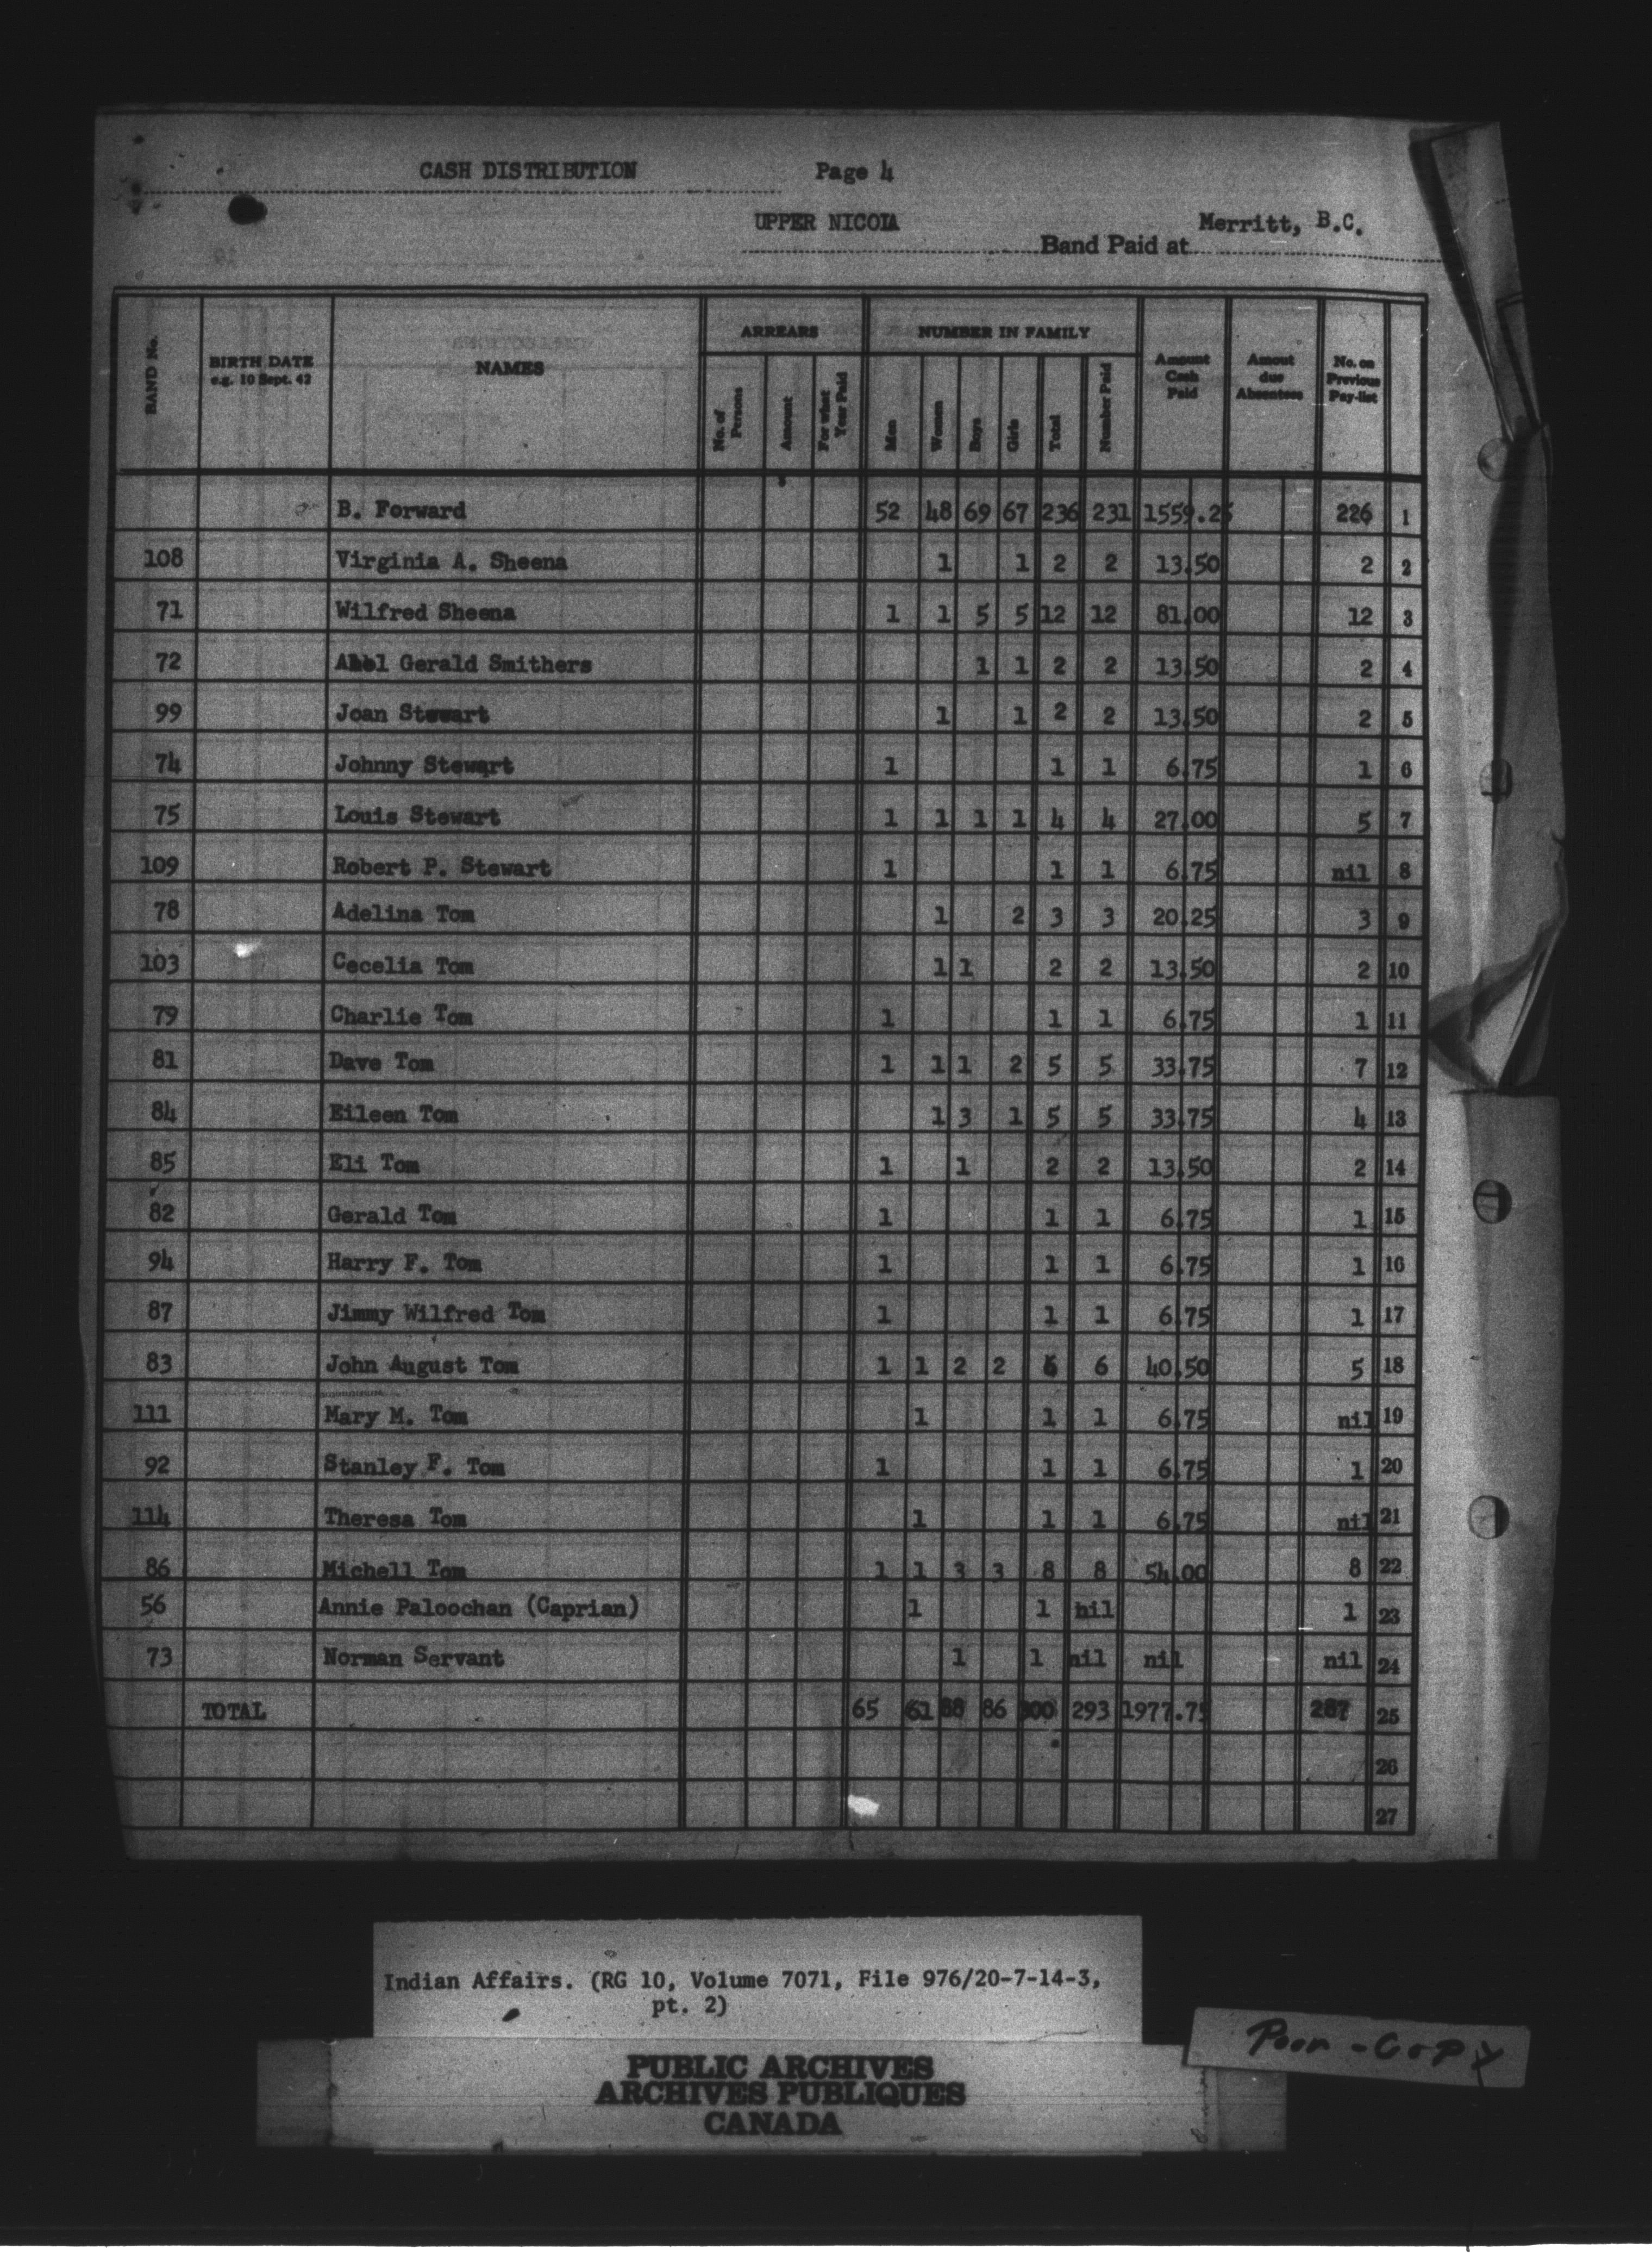 CASH DISTRIBUTION Page 4
UPPER NICOLA Merritt, B.C.
Band Paid at
BAND No. BIRTH DATE e.g. 10 Sept. 42 NAMES ARREARS No. of Persons Amount For what Year Paid NUMBER IN FAMILY Men Women Boys Girls Total Number Paid Amount Cash Paid Amout due Absentees No. on Previous Pay-list
B. Forward 52 48 69 67 236 231 1559.25 226 1
108 Virginia A. Sheena 1 1 2 2 13.50 2 2
71 Wilfred Sheena 1 1 5 5 12 12 81.00 12 3
72 Gerald Smithers 1 1 2 2 13.50 2 4
99 Joan Stewart 1 1 2 2 13.50 2 5
74 Johnny Stewart 1 1 1 6.75 1 6
75 Louis Stewart 1 1 1 1 4 4 27.00 5 7
109 Robert P. Stewart 1 1 1 6.75 nil 8
78 Adelina Tom 1 2 3 3 20.25 3 9
103 Cecelia Tom 1 1 2 2 13.50 2 10
79 Charlie Tom 1 1 1 6.75 1 11
81 Dave Tom 1 1 1 2 5 5 33.75 7 12
84 Eileen Tom 1 3 1 5 5 33.75 4 13
85 Eli Tom 1 1 2 2 13.50 2 14
82 Gerald Tom 1 1 1 6.75 1 15
94 Harry F. Tom 1 1 1 6.75 1 16
87 Jimmy Wilfred Tom 1 1 1 6.75 1 17
83 John August Tom 1 1 2 2 6 6 40.50 5 18
111 Mary M. Tom 1 1 1 6.75 nil 19
92 Stanley F. Tom 1 1 1 6.75 1 20
114 Theresa Tom 1 1 1 6.75 nil 21
86 Michell Tom 1 1 3 3 8 8 54.00 8 22
56 Annie Paloochan (Caprian) 1 1 nil 1 23
73 Norman Servant 1 1 nil nil nil 24
TOTAL 65 61 88 86 300 293 1977.75 267 25
26
27
Indian Affairs. (RG 10, Volume 7071, File 976/20-7-14-3,
pt. 2)
Poor - Copy
PUBLIC ARCHIVES
ARCHIVES PUBLIQUES
CANADA